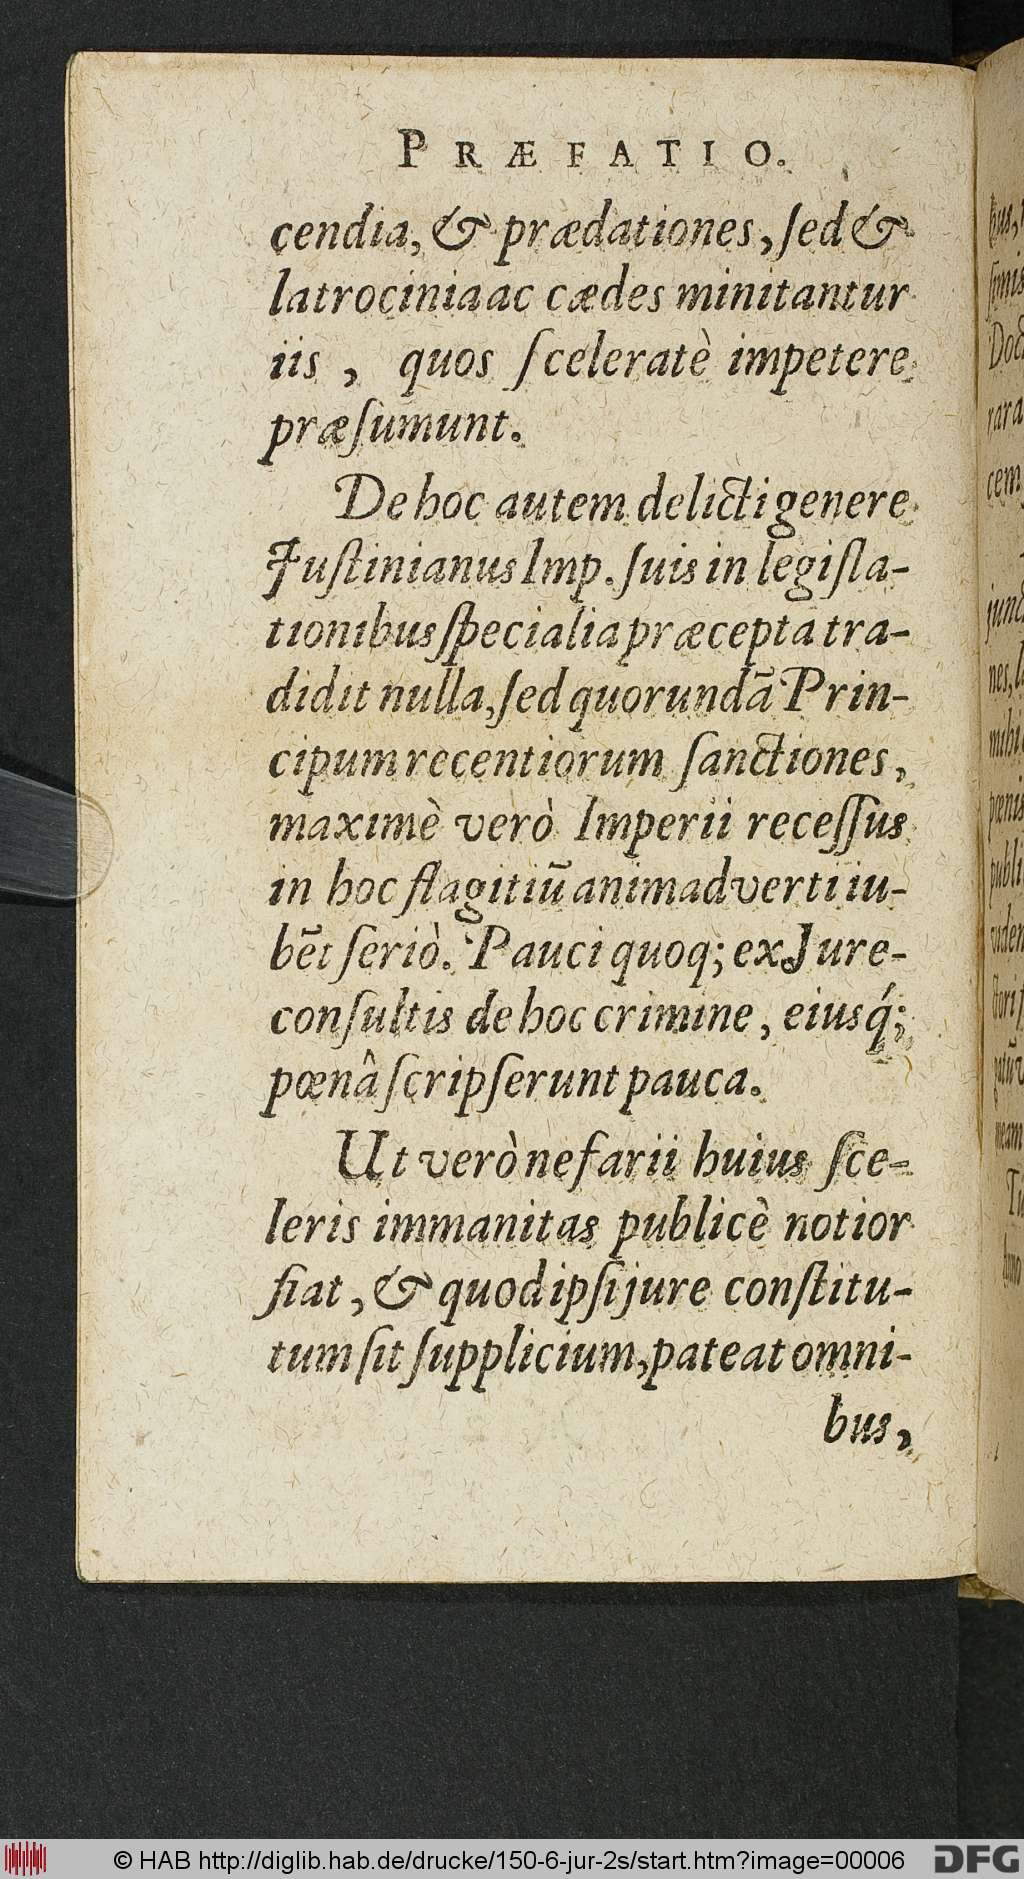 PRÆFATIO.
cendia, & prædationes, ſed &
latrocinia ac cædes minitantur
iis, quos ſceleratè impetere
præſumunt.
De hoc autem delicti genere
Juſtinianus Imp. ſuis in legiſla-
tionibus ſpecialia præcepta tra-
didit nulla, ſed quorundã Prin-
cipum recentiorum ſanctiones,
maximè verò Imperii receſſus
in hoc flagitiũ animadverti iu-
bẽt ſeriò. Pauci quoq; ex Jure-
conſultis de hoc crimine, eiusq́;
pœnâ ſcripſerunt pauca.
Ut verò nefarii huius ſce-
leris immanitas publicè notior
fiat, & quod ipſi jure conſtitu-
tum ſit ſupplicium, pateat omni-
bus,
© HAB http://diglib.hab.de/drucke/150-6-jur-2s/start.htm?image=00006
DFG